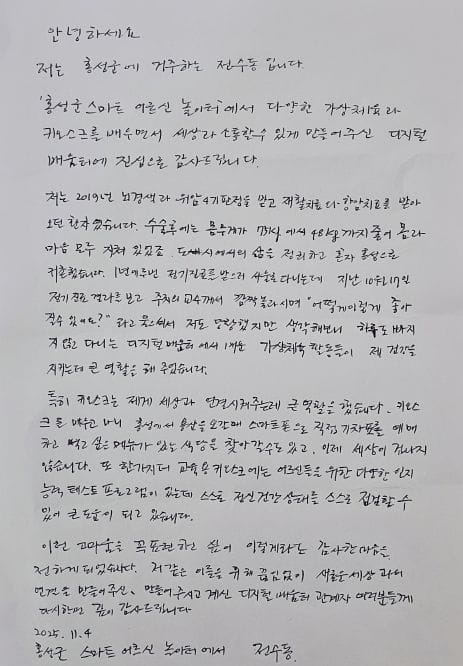 안녕하세요
저는 홍성군에 거주하는 전수동 입니다.
'홍성군 스마트 어르신 놀이터'에서 다양한 가상체육과
키오스크를 배우면서 세상과 소통할수 있게 만들어주신 디지털
배움터에 진심으로 감사드립니다.
저는 2019년 뇌경색과 위암4기판정을 받고 재활치료와 항암치료를 받아
오던 환자였습니다. 수술후에는 몸무게가 75kg에서 48kg까지 줄어 몸과
마음 모두 지쳐 있었죠. 도시에서의 삶을 정리하고 혼자 홍성으로
귀촌했습니다. 1년에 두번 정기진료를 받으러 서울로 다니는데 지난 10월 17일
정기진료 결과를 보고 주치의 교수께서 깜짝놀라시며 "어떻게이렇게 좋아
질수 있어요?" 라고 물으셔서 저도 당황했지만 생각해보니 하루도 빠지
지 않고 다니는 디지털 배움터에서 배운 가상체육 활동들이 제 건강을
지키는데 큰 역할을 해 주었습니다.
특히 키오스크는 제게 세상과 연결시켜주는데 큰 역할을 했습니다. 키오스
크를 배우고 나니 홍성에서 용산을 오갈때 스마트폰으로 직접 기차표를 예매
하고 먹고 싶은 메뉴가 있는 식당을 찾아갈수도 있고, 이제 세상이 겁나지
않습니다. 또 한가지더 교육용 키오스크에는 어르신들을 위한 다양한 인지
능력 테스트 프로그램이 있는데 스스로 정신건강 상태를 스스로 점검할 수
있어 큰 도움이 되고 있습니다.
이런 고마움을 꼭 표현하고 싶어 이렇게라도 감사한 마음을
전하게 되었습니다. 저 같은 이들을 위해 끊임없이 새로운 세상 과의
연결을 만들어주신, 만들어주시고 계신 디지털 배움터 관계자 여러분들께
다시한번 깊이 감사드립니다
2025. 11. 4
홍성군 스마트 어르신 놀이터에서 전수동.